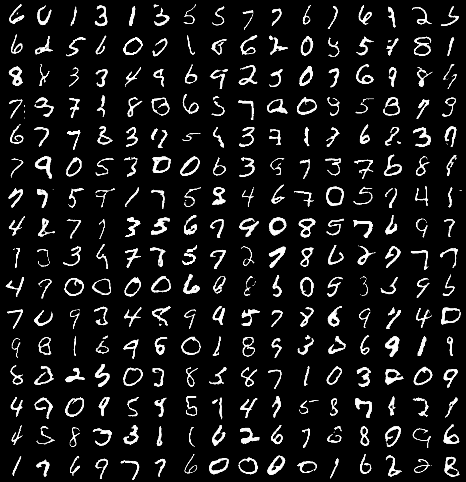 6 0 1 3 1 3 5 5 7 7 6 7 6 1 2 5
6 2 5 6 0 0 1 8 6 2 0 9 5 7 8 1
8 8 3 3 4 9 6 9 2 5 0 3 6 9 8 4
7 3 7 1 8 0 6 5 7 2 0 9 5 8 7 9
6 7 7 8 3 5 4 3 7 1 7 6 8 3 9
7 9 0 5 3 0 0 6 3 9 7 3 7 6 8 9
7 7 5 9 1 7 5 8 4 6 7 0 5 9 4 1
4 8 7 7 3 5 6 7 9 0 8 5 7 6 9 7
1 3 3 4 7 7 5 7 2 7 8 6 2 9 7 7
4 9 0 0 0 0 6 8 8 5 0 5 3 5 9 5
7 0 9 3 4 8 9 9 5 7 8 6 9 7 4 0
9 8 1 5 9 6 0 1 8 9 3 2 6 9 1 9
8 2 2 5 0 3 8 5 8 7 1 0 3 2 0 9
4 9 0 9 5 9 5 7 4 9 5 8 7 1 2 7
4 5 8 3 3 1 1 6 2 6 7 8 8 9 9 6
1 7 6 9 7 7 6 0 0 0 0 1 6 2 2 8